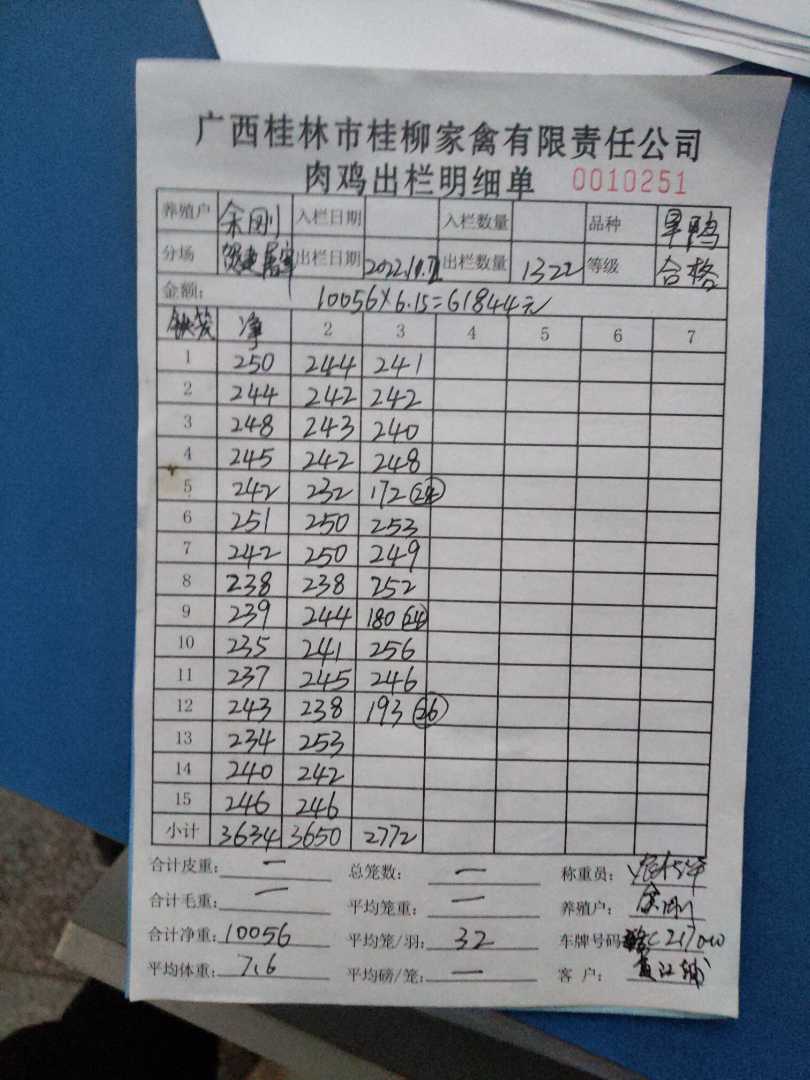 广西桂林市桂柳家禽有限责任公司
肉鸡出栏明细单 0010251
养殖户 余刚 入栏日期 入栏数量 品种 旱鸭
分场 出栏日期 2022.10. 出栏数量 1322 等级 合格
金额: 10056×6.15=61844元
净 2 3 4 5 6 7
1 250 244 241
2 244 242 242
3 248 243 240
4 245 242 248
5 242 232 172 (24)
6 251 250 253
7 242 250 249
8 238 238 252
9 239 244 180 (24)
10 235 241 256
11 237 245 246
12 243 238 193 (26)
13 234 253
14 240 242
15 246 246
小计 3634 3650 2772
合计皮重: 一 总笼数: 一 称重员:
合计毛重: 一 平均笼重: 一 养殖户: 余刚
合计净重: 10056 平均笼/羽: 32 车牌号码
平均体重: 7.6 平均磅/笼: 一 客 户: